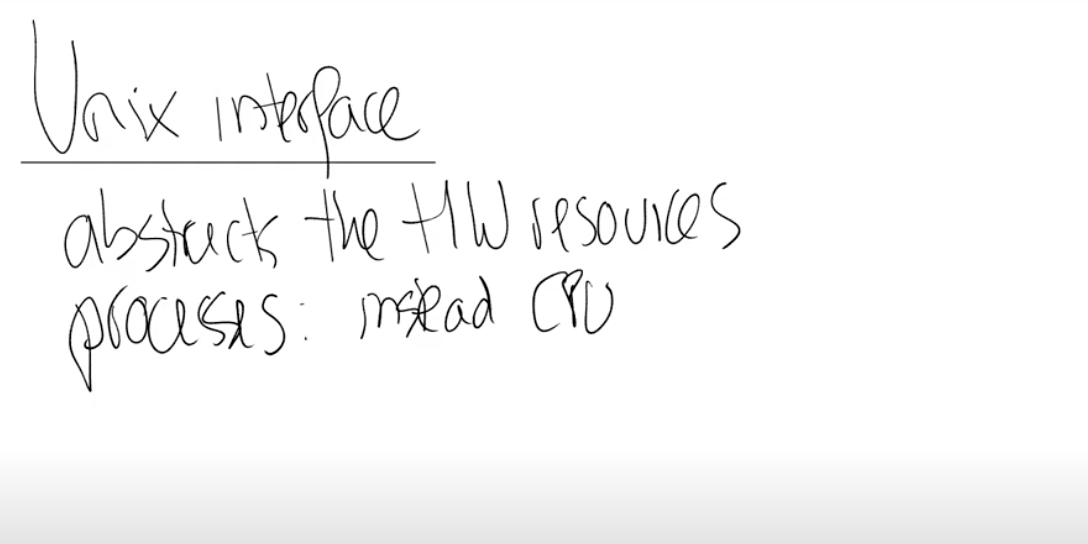 Unix interface
abstracts the HW resources
processes: instead CPU